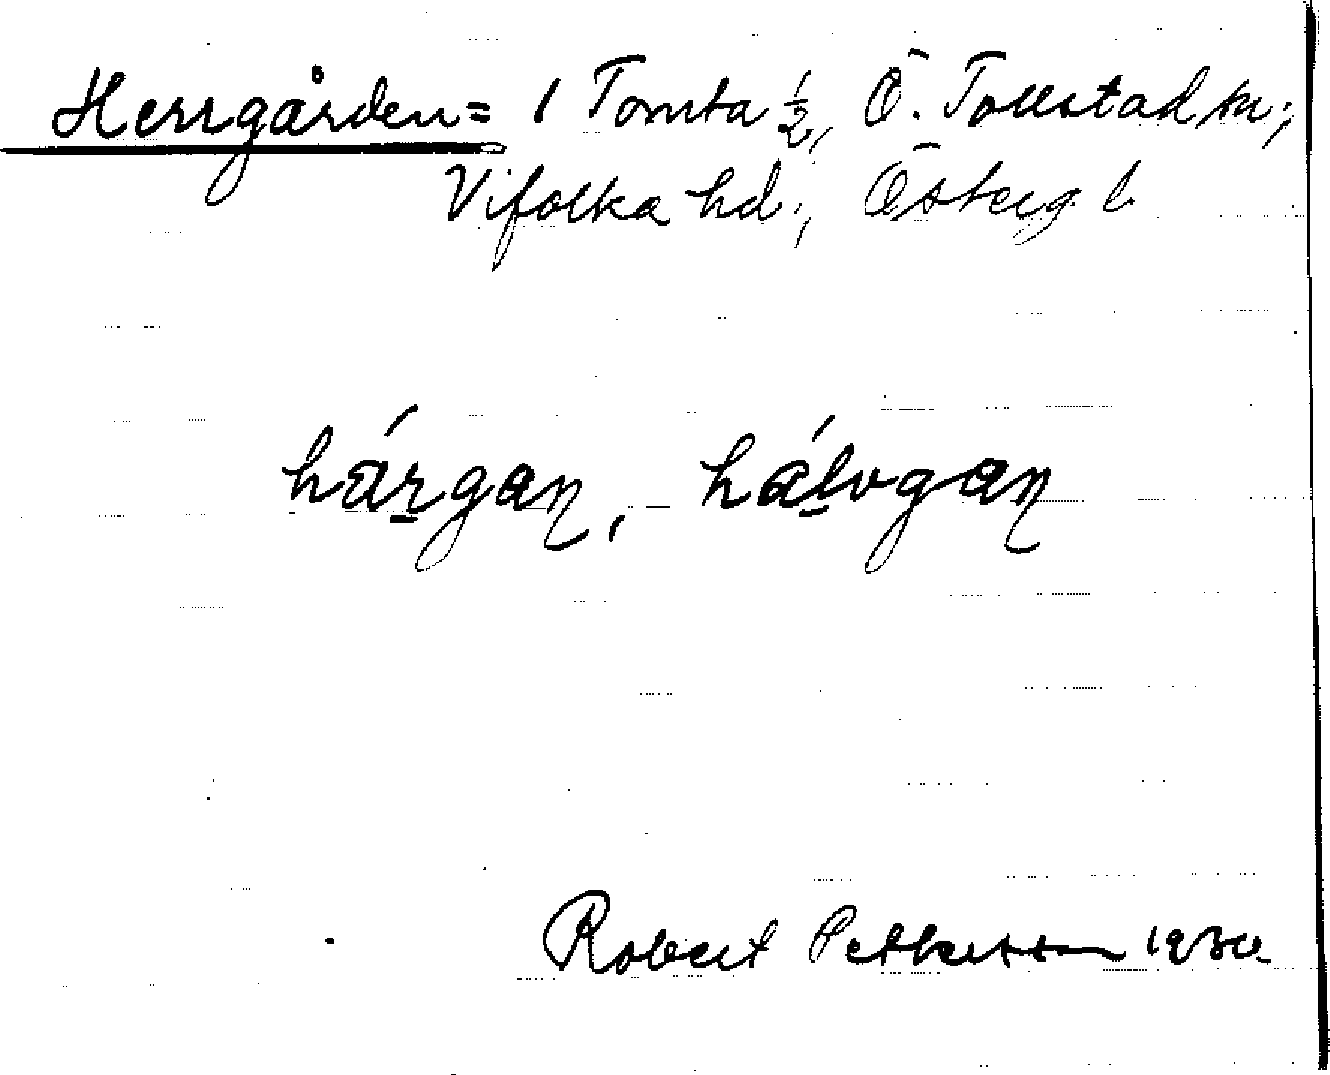 Herrgården = 1 Tomta ½, Ö. Tollstad sn;
Vifolka hd; Österg l.
hárgaɲ, hálvgaɲ
Robert Pettersson 1930